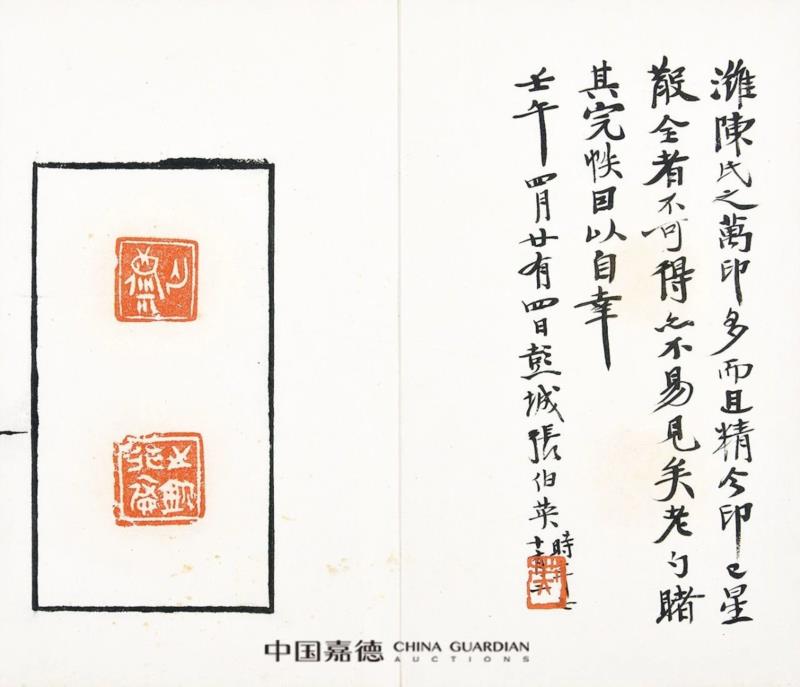 濰陳氏之萬印多而且精今印已星
散全者不可得亦不易見矣老勺賭
其完帙目以自幸
壬午四月廿有四日彭城張伯英
時年七
十有二
中国嘉德 CHINA GUARDIAN
AUCTIONS